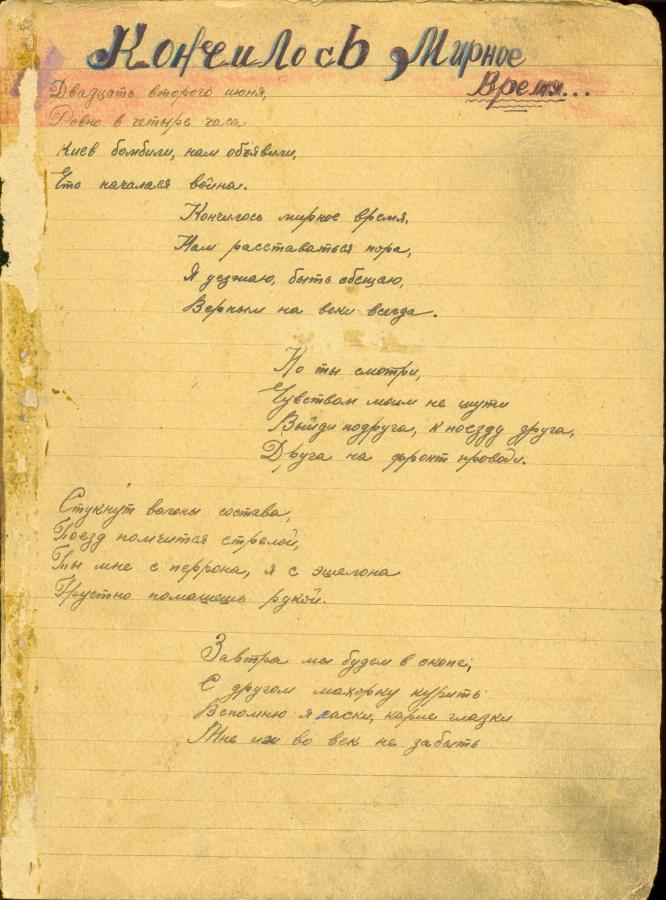 Кончилось Мирное
Время...
Двадцать второго июня,
Ровно в четыре часа
Киев бомбили, нам объявили,
Что началася война.
Кончилось мирное время,
Нам расставаться пора,
Я уезжаю, быть обещаю,
Верным на веки всегда.
Но ты смотри,
Чувством моим не шути
Выйди подруга, к поезду друга,
Друга на фронт проводи.
Стукнут вагоны состава,
Поезд помчится стрелой,
Ты мне с перрона, я с эшелона
Грустно помашешь рукой.
Завтра мы будем в окопе,
С другом махорку курить
Вспомню я ласки, карие глазки
Мне их во век не забыть